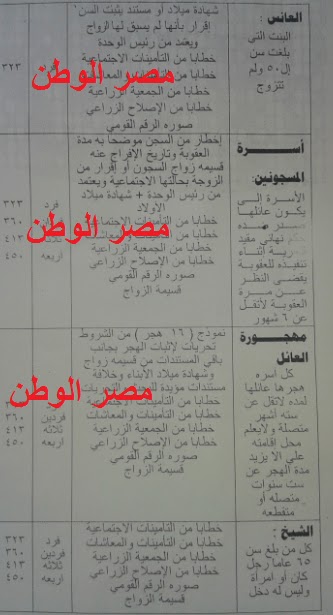 العانس :
البنت التي
بلغت سن
إل ٥٠ ولم
تتزوج
شهادة ميلاد أو مستند يثبت السن
إقرار بأنها لم يسبق لها الزواج
ويعتمد من رئيس الوحدة
خطابا من التأمينات الاجتماعية
خطابا من التأمينات والمعاشات
خطابا من الجمعية الزراعي
خطابا من الإصلاح الزراعي
صوره الرقم القومي
فرد
٣٢٣
مصر الوطن
أسرة
المسجونين:
الأسرة إلى
يكون عائلها
صدر ضده
حكم نهائي مقيد
حرية أثناء
تنفيذه للعقوبة
بقضى النظر
عن مرة
العقوبة لأتقل
عن ٦ شهور
إخطار من السجن موضحا به مدة
العقوبة وتاريخ الإفراج عنه
قسيمه زواج السجون أو إقرار من
الزوجة بحالتها الاجتماعية ويعتمد
من رئيس الوحدة + شهادة ميلاد
الأولاد
خطابا من التأمينات الاجتماعية
خطابا من التأمينات والمعاشات
خطابا من الجمعية الزراعي
خطابا من الإصلاح الزراعي
صوره الرقم القومي
قسيمة الزواج
فرد
ثلاثه
اربعه
٣٢٣
٣٦٠
٤١٣
٤٥٠
مصر الوطن
مهجورة
العائل
كل أسره
هجرها عائلها
لمده لاتقل عن
سته أشهر
متصلة ولايعلم
محل اقامته
على الا يزيد
مدة الهجر عن
ست سنوات
متصله أو
متقطعه
نموذج ( ١٦ هجر ) من الشروط
تحريات لإثبات الهجر بجانب
باقي المستندات من قسيمه زواج
وشهادة ميلاد الأبناء وخلافة
مستندات مؤيدة للهجر التحريات
خطابا من التأمينات الاجتماعية
خطابا من التأمينات والمعاشات
خطابا من الجمعية الزراعي
خطابا من الإصلاح الزراعي
صوره الرقم القومي
قسيمة الزواج
فردين
ثلاثه
اربعه
٣٦٠
٤١٣
٤٥٠
مصر الوطن
الشيخ :
كل من بلغ سن
٦٥ عاما رجل
كان أو امرأة
وليس له دخل
خطابا من التأمينات الاجتماعية
خطابا من التأمينات والمعاشات
خطابا من الجمعية الزراعي
خطابا من الإصلاح الزراعي
صوره الرقم القومي
قسيمة الزواج
فرد
فردين
ثلاثه
اربعه
٣٢٣
٣٦٠
٤١٣
٤٥٠